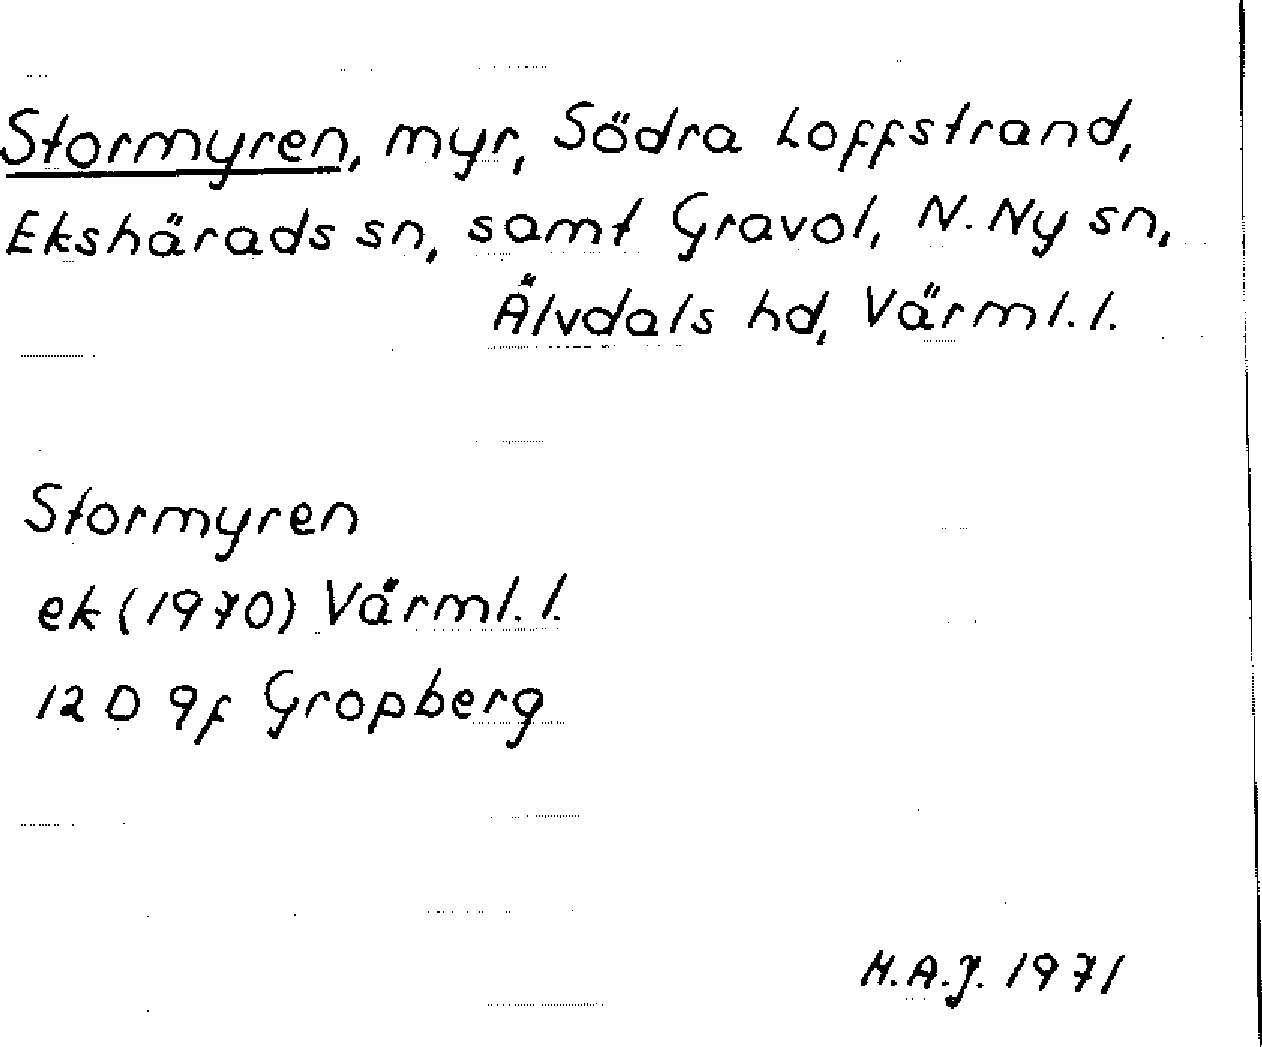 Stormyren, myr, Södra Loffstrand,
Ekshärads sn, samt Gravol, N. Ny sn,
Älvdals hd, Värml. l.
Stormyren
ek (1970) Värml. l.
12 D 9f Gropberg
H.A.J. 1971